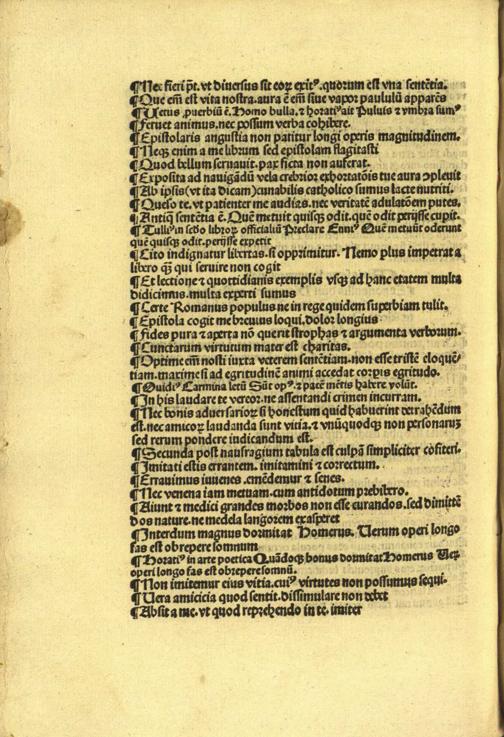 ¶Nec fieri pōt. vt diuersus sit eoꝝ exitꝰ. quorum est vna sentētia.
¶Que em̄ est vita nostra. aura ē em̄ siue vapor paululū apparēs
¶Uetus ꝓuerbiū ē. Homo bulla. ⁊ horatiꝰ ait Puluis ⁊ vmbra sumꝰ
¶Feruet animus. nec possum verba cohibere.
¶Epistolaris angustia non patitur longi operis magnitudinem.
¶Neqꝫ enim a me librum sed epistolam flagitasti
¶Quod bellum seruauit. pax ficta non auferat.
¶Exposita ad nauigādū vela crebrior exhortatōis tue aura ɔpleuit
¶Ab ipsis (vt ita dicam) cunabilis catholico sumus lacte nutriti.
¶Queso te. vt patienter me audias. nec veritatē adulatōem putes.
¶Antiq̄ sentētia ē. Quē metuit quisqꝫ odit. quē odit perijsse cupit.
¶Tulliꝰ in sedo libroꝝ officialiū Preclare Enniꝰ Quē metuūt oderunt
quē quisqꝫ odit. perijsse expetit
¶Cito indignatur libertas. si opprimitur. Nemo plus imperat a
libero q̄ꝫ qui seruire non cogit
¶Et lectione ⁊ quottidianis exemplis vsqꝫ ad hanc etatem multa
didicimus. multa experti sumus
¶Certe Romanus populus ne in rege quidem superbiam tulit.
¶Epistola cogit me breuius loqui. dolor longius
¶Fides pura ⁊ aperta nō querit strophas ⁊ argumenta verborum.
¶Cunctarum virtutum mater est charitas.
¶Optime em̄ nosti iuxta veterem sentētiam. non esse tristē eloquē-
tiam. maxime si ad egritudinē animi accedat corpis egritudo.
¶Ouidiꝰ Carmina letū Sūt opꝰ. ⁊ pacē mētis habere volūt.
¶In his laudare te vereor. ne assentandi crimen incurram.
¶Nec bonis aduersarioꝝ si honestum quid habuerint detrahēdum
est. nec amicoꝝ laudanda sunt vitia. ⁊ vnūquodqꝫ non personaꝝ
sed rerum pondere iudicandum est.
¶Secunda post naufragium tabula est culpā simpliciter cōfiteri.
¶Imitati estis errantem. imitamini ⁊ correctum.
¶Errauimus iuuenes. emēdemur ⁊ senes.
¶Nec venena iam metuam. cum antidotum prebibero.
¶Aiunt ⁊ medici grandes morbos non esse curandos. sed dimittē
dos nature. ne medela langorem exasperet
¶Interdum magnus dormitat Homerus. Uerum operi longo
fas est obrepere somnum
¶Horatiꝰ in arte poetica Quādoqꝫ bonus dormitat Homerus Ueꝝ
operi longo fas est obrepere somnū.
¶Non imitemur eius vitia. cuiꝰ virtutes non possumus sequi.
¶Uera amicicia quod sentit. dissimulare non debet
¶Absit a me. vt quod reprehendo in te. imiter